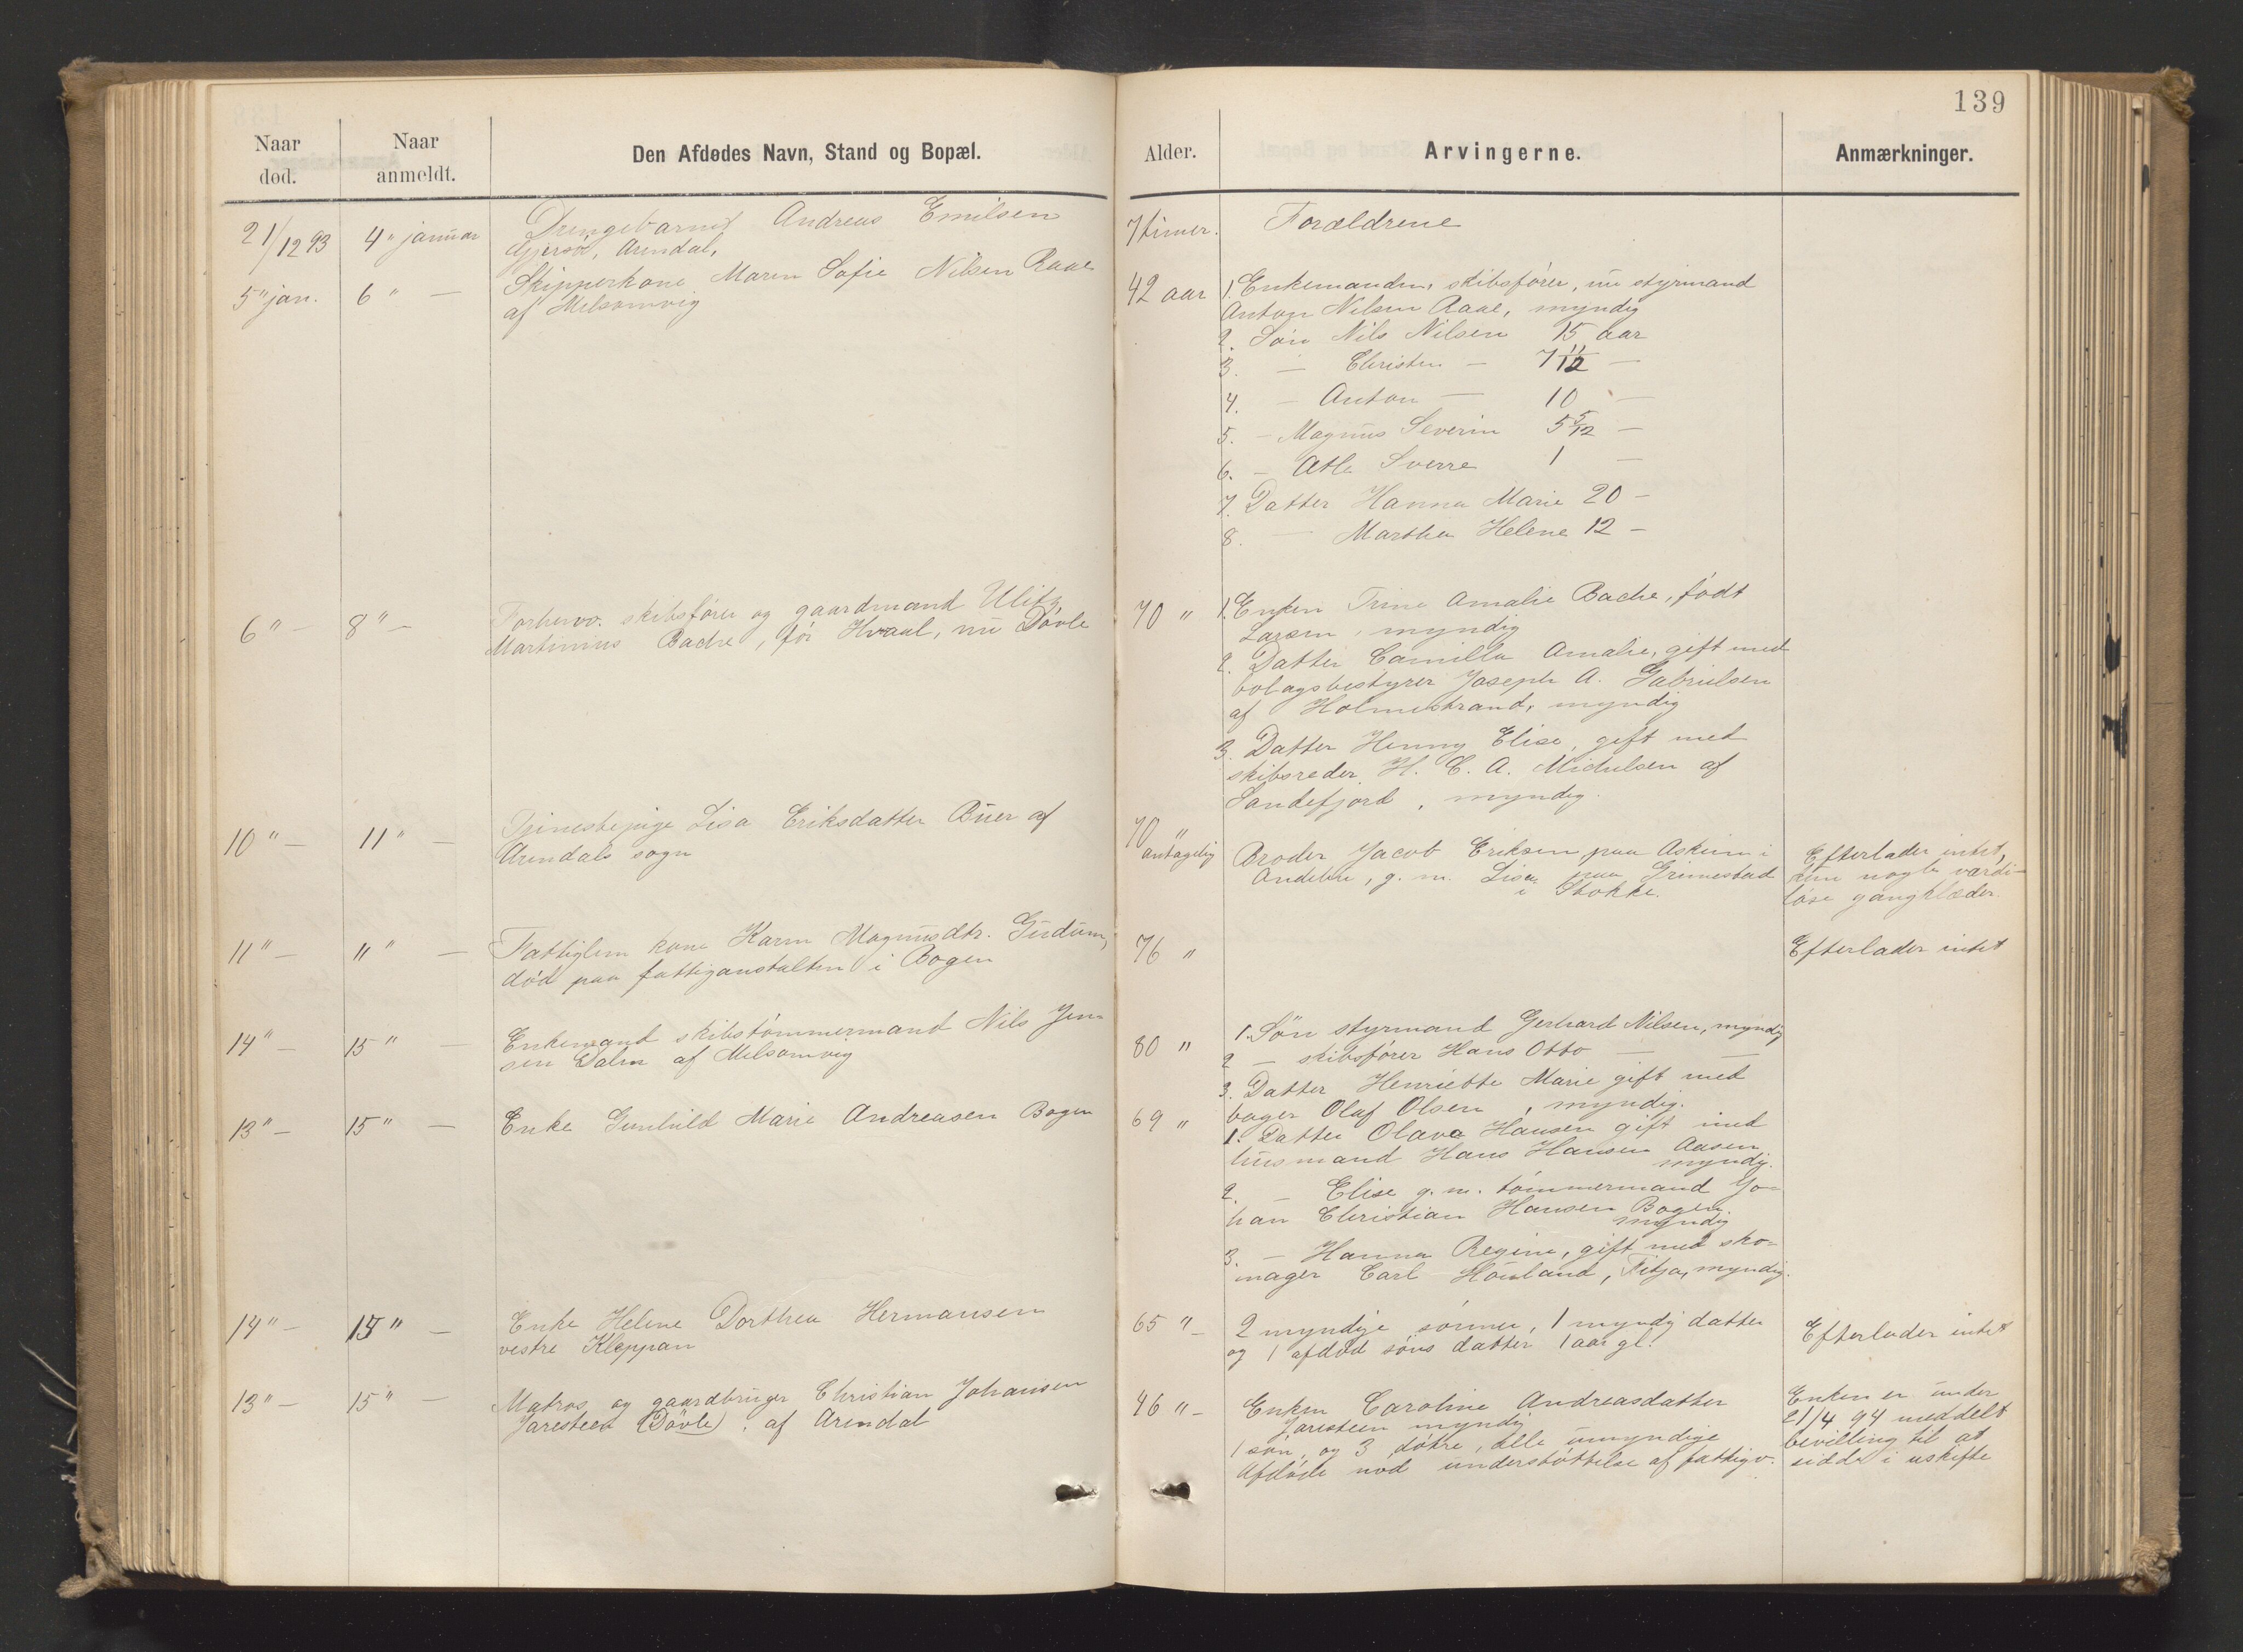 139
Naar død.
Naar anmeldt.
Den Afdødes Navn, Stand og Bopæl.
Alder.
Arvingerne.
Anmærkninger.
21/12 93
4" januar
Drengebarnet Andreas Emilsen
Gjersø, Arendal,
7 timer.
Forældrene
5" jan.
6" —
Skipperkone Maren Sofie Nilsen Raae
af Melsomvig
42 aar
1. Enkemanden, skibsfører, nu styrmand
Anton Nilsen Raae, myndig
2. Søn Nils Nilsen 15 aar
3. — Christen — 7 11/12 —
4. — Anton — 10 —
5. — Magnus Severin 5 5/12 —
6. — Atle Sverre 1 —
7. Datter Hanna Marie 20 —
8. — Martha Helene 12 —
6" —
8" —
Forhenv. skibsfører og gaardmand Ulitz
Martinius Bache, før Hvaal, nu Døvle
70 "
1. Enken Trine Amalie Bache, født
Larsen, myndig
2. Datter Camilla Amalie, gift med
bolagsbestyrer Joseph A. Gabrielsen
af Holmestrand, myndig
3. Datter Henny Elise, gift med
skibsreder H. C. A. Michelsen af
Sandefjord, myndig.
10" —
11" —
Tjenestepige Lisa Eriksdatter Buer af
Arendals sogn
70 "
antagelig
Broder Jacob Eriksen paa Askeim i
Andebu, g. m. Lisa paa Grimestad
i Stokke.
Efterlader intet,
uden nogle værdi-
løse gangklæder.
11" —
11" —
Fattiglem kone Karen Magnusdtr. Gudum,
død paa fattiganstalten i Bogen
76 "
Efterlader intet
14" —
15" —
Enkemand skibstømmermand Nils Jen-
sen Dalen af Melsomvig
80 "
1. Søn styrmand Gerhard Nilsen, myndig
2 — skibsfører Hans Otto — —
3. Datter Henriette Marie gift med
bager Olaf Olsen, myndig.
13" —
15" —
Enke Gunhild Marie Andreasen Bogen
69 "
1. Datter Olava Hansen gift med
husmand Hans Hansen Aasen
myndig.
2. — Elise g. m. tømmermand Jo-
han Christian Hansen Bogen.
myndig
3. — Hanna Regine, gift med sko-
mager Carl Høuland, Fitja, myndig.
14" —
15" —
Enke Helene Dorthea Hermansen
vestre Kleppan
65 " —
2 myndige sønner, 1 myndig datter
og 1 afdød søns datter 1 aar gl.
Efterlader intet
13" —
15" —
Matros og gaardbruger Christian Johansen
Jaresteen (Døvle), af Arendal
46 " —
Enken Caroline Andreasdatter
Jaresteen myndig
1 søn og 3 døtre, alle umyndige
Afdøde nød understøttelse af fattigv.
Enken er under
21/4 94 meddelt
bevilling til at
sidde i uskifte